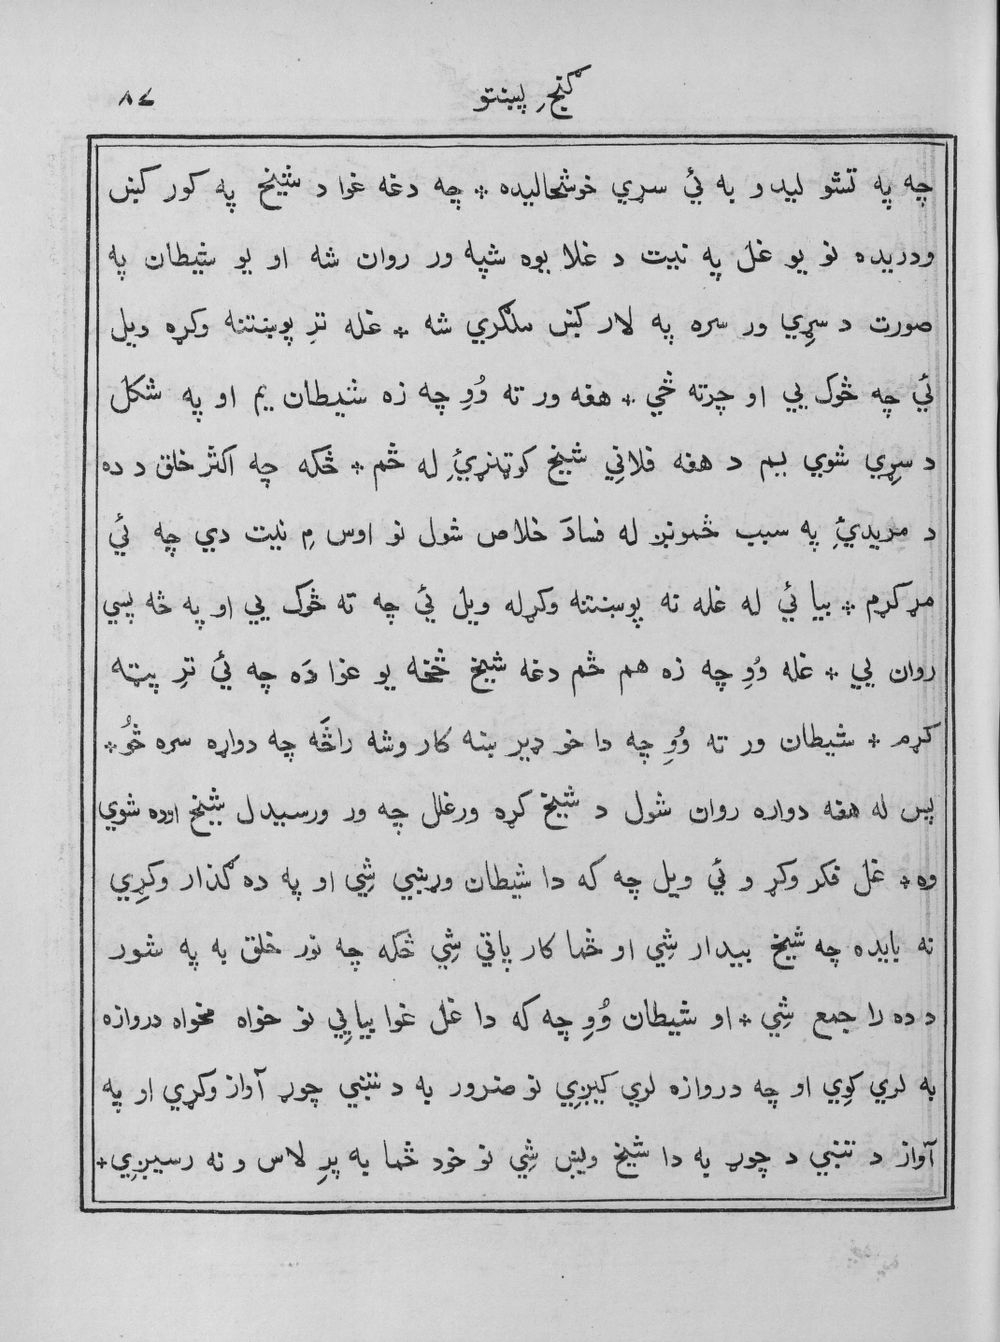 گنجِ پښتو
٨٤
چه په تشو ليدو به ئي سړي خوشحاليده ❊ چه دغه غوا د شيخ په کور کښ
ودريده نو يو غل په نيت د غلا يوه شپه ور روان شه او يو شيطان په
صورت د سړِي ور سره په لار کښ ملګري شه ❊ غله ترِ پوښتنه وکړه ويل
ئي چه څوک يي او چرته ځي ❊ هغه ور ته وُوِ چه زه شيطان يم او په شکل
د سړِي شوي يم د هغه فلانِي شيخ کوټنړئِ له ځم ❊ ځکه چه اکثر خلق د ده
د مريدئِ په سبب ځمونږ له فسادَ خلاص شول نو اوس مِ نيت دي چه ئي
مړ کړم ❊ بيا ئي له غله نه پوښتنه وکړله ويل ئي چه ته څوک يي او په څه پسي
روان يي ❊ غله وُوِ چه زه هم ځم دغه شيخ څخه يو غوا دَه چه ئي ترِ پټه
کړم ❊ شيطان ور ته وُوِ چه دا خو ډير ښه کار وشه راځَه چه دواړه سره ځُو ❊
پس له هغه دواره روان شول د شيخ کړه ورغلل چه ور ورسيدل شيخ اوده شوي
وه ❊ غل فکر وکړ و ئي ويل چه که دا شيطان وړنبي شِي او په ده ګذار وکړِي
نه بايده چه شيخ بيدار شِي او ځما کار پاتي شِي ځکه چه نور خلق به په شور
د ده را جمع شِي ❊ او شيطان وُوِ چه که دا غل غوا بيايِي نو خواه مخواه دروازه
به لري کوِي او چه دروازه لري کيږِي نو ضرور به د ننبي چوړ آواز وکړي او په
آواز د ننبي د چوړ به دا شيخ ويښ شِي نو خود ځما به پرِ لاس و نه رسيږِي ❊